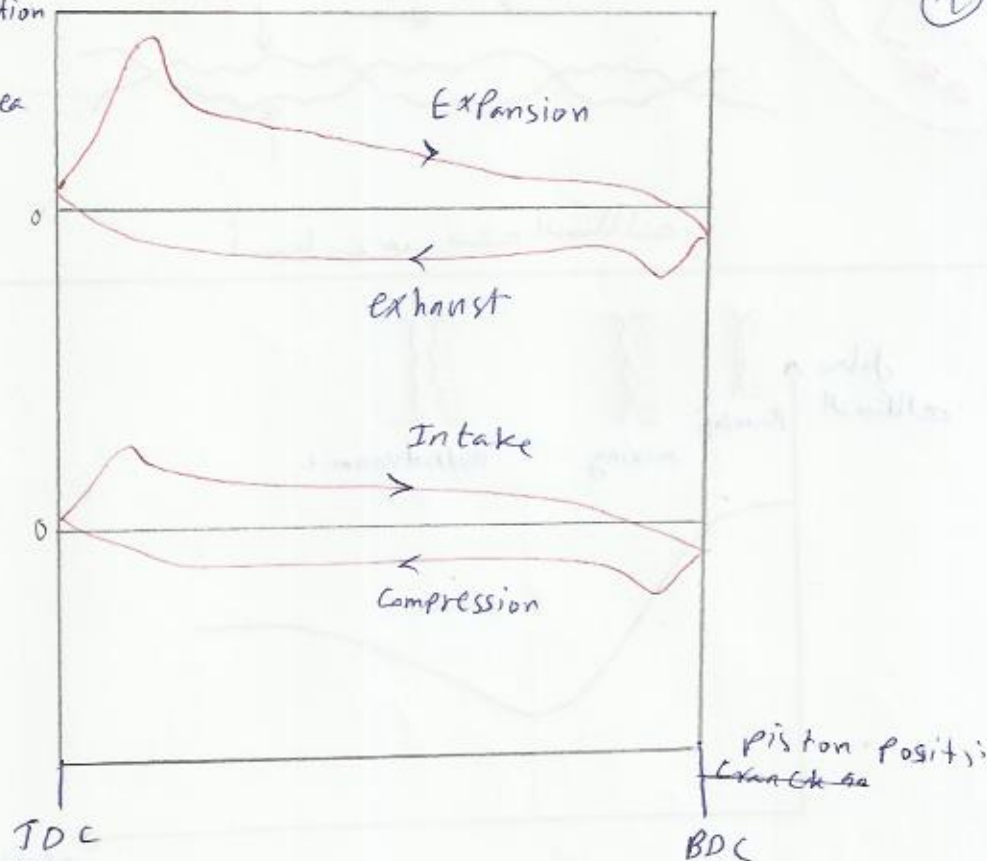 tion
ea
Expansion
0
exhaust
Intake
0
Compression
piston positi
TDC
BDC